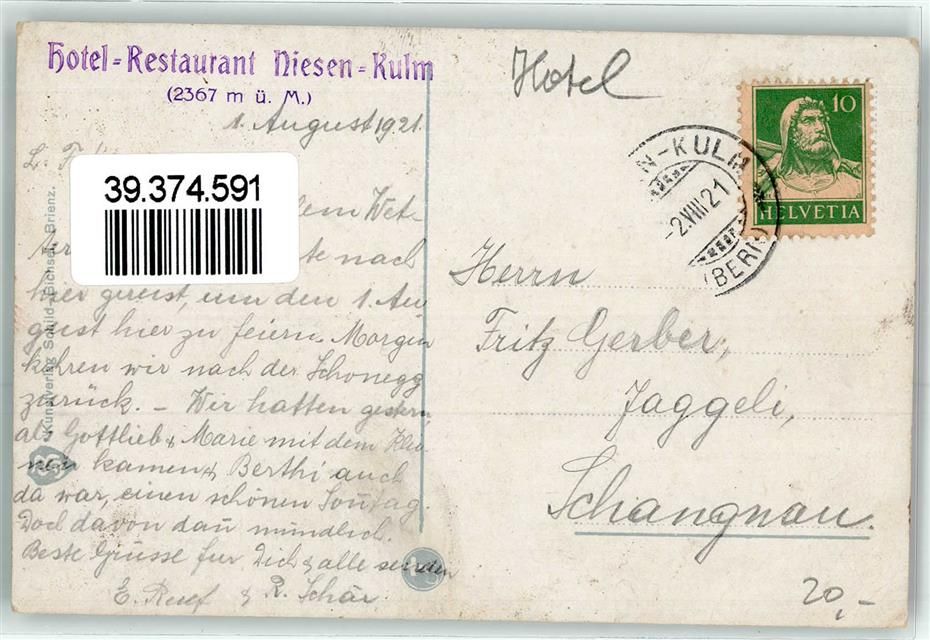 Hotel-Restaurant Niesen-Kulm
(2367 m ü. M.)
1. August 1921.
L.
39.374.591
Wet-
nach
hier gereist, um den 1. Au-
gust hier zu feiern. Morgen
kehren wir nach der Schonegg
zurück. – Wir hatten gestern
als Gottlieb & Marie mit dem Klei-
nen kamen & Berthi auch
da war, einen schönen Soñtag.
Doch davon dañ mündlich.
Beste Grüsse für Dich & alle senden
E. Ruef & R. Schär.
Kunstverlag Schild-Bichsel, Brienz.
Hotel
10
HELVETIA
N-KULM
-2.VIII.21
(BERN)
Herrn
Fritz Gerber,
Jaggeli,
Schangnau.
20,-